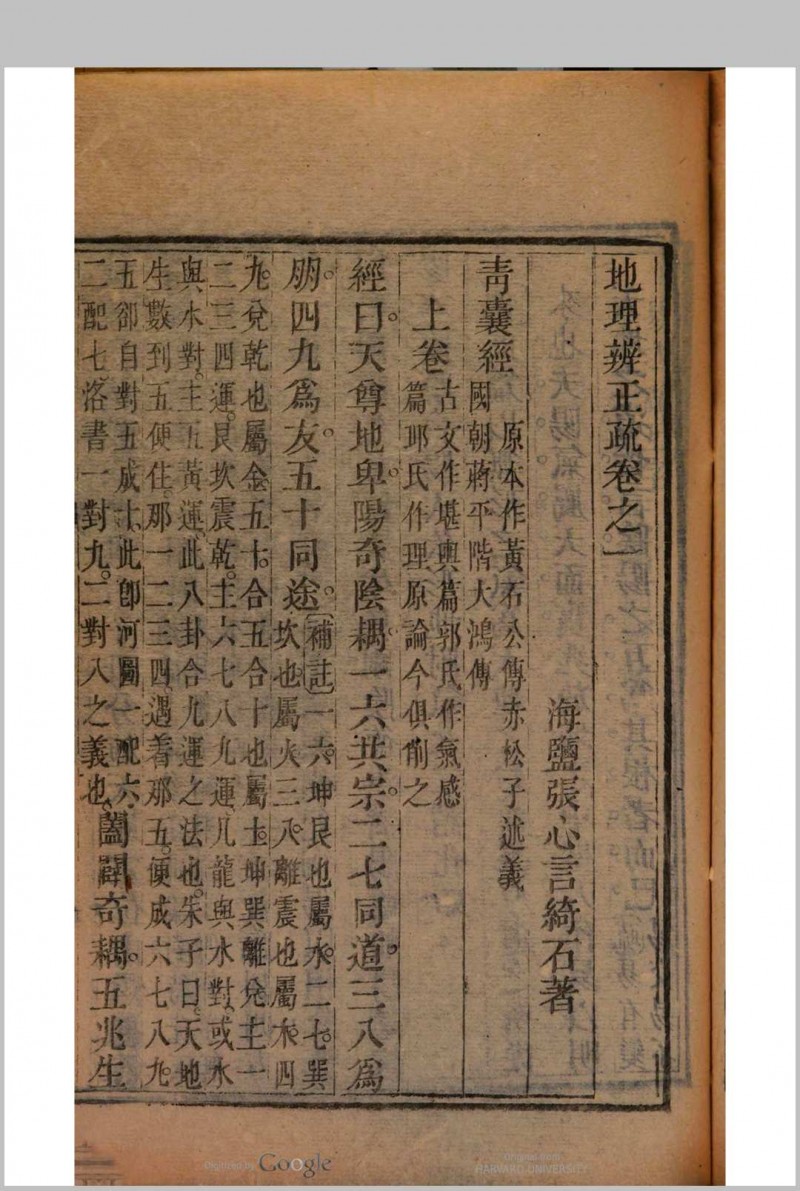 地理辨正疏卷之一
海鹽張心言綺石著
青囊經
原本作黃石公傳赤松子述義
國朝蔣平階大鴻傳
上卷
古文作堪輿篇郭氏作氣感
篇邱氏作理原論今俱削之
經曰。天尊地卑。陽奇陰耦。一六共宗。二七同道。三八爲
朋。四九爲友。五十同途。
補註一六。坤艮也。屬水。二七。巽
坎也。屬火。三八。離震也。屬木。四
九。兌乾也。屬金。五十。合五合十也。屬土。坤巽離兌。主一
二三四運。艮坎震乾。主六七八九運。凡龍與水對。或水
與水對。主五黃運。此八卦合九運之法也。朱子曰。天地
生數到五便住。那一二三四。遇著那五。便成六七八九。
五卻自對五成十。此卽河圖一配六。
二配七。洛書一對九。二對八之義也。
闔闢奇耦。五兆生
Digitized by Google
Original from
HARVARD UNIVERSITY